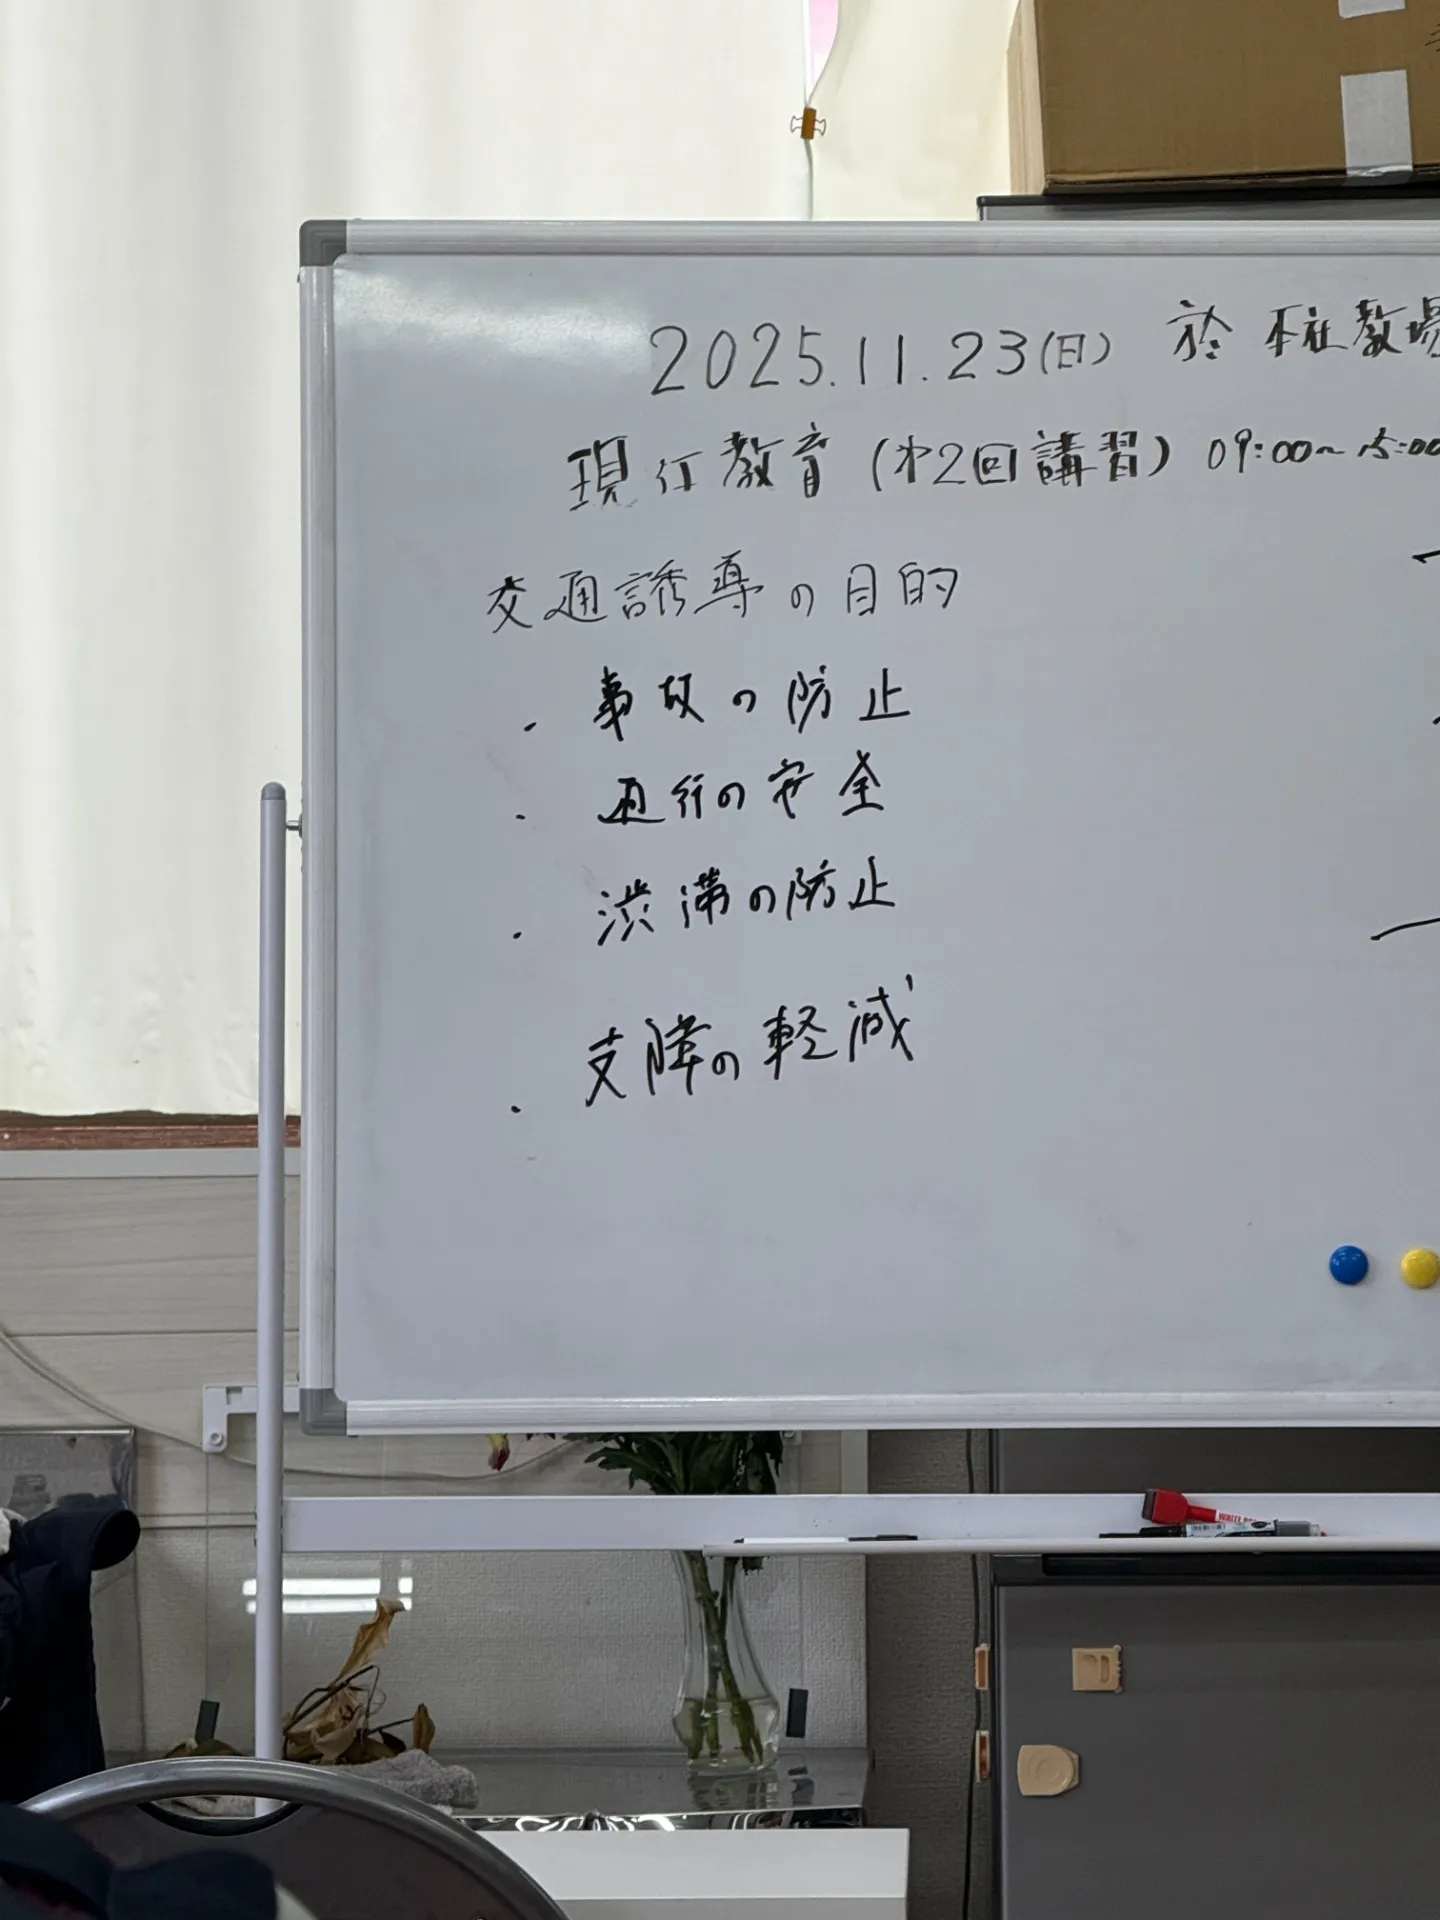 2025.11.23(日) 於 本社教場
現任教育(第2回講習) 09:00~15:00
交通誘導の目的
・ 事故の防止
・ 通行の安全
・ 渋滞の防止
・ 支障の軽減
WHITE BO